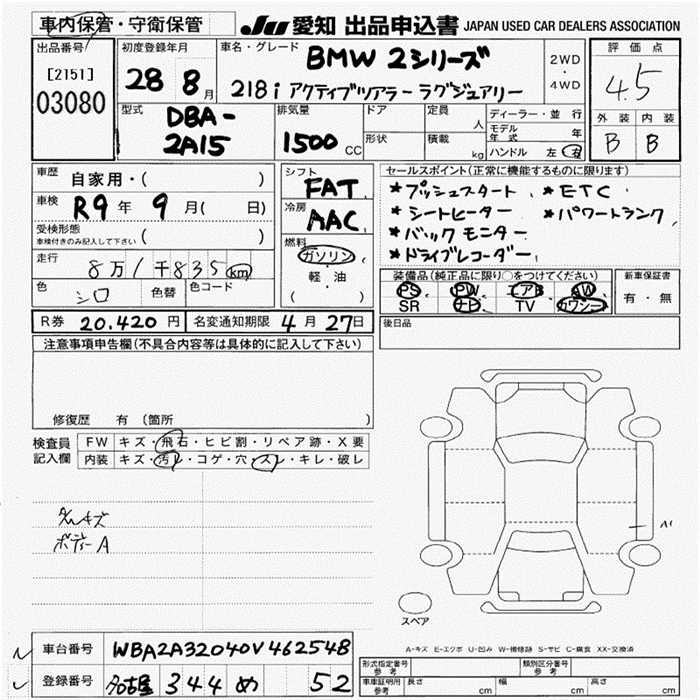 車内保管・守衛保管
JU 愛知 出品申込書 JAPAN USED CAR DEALERS ASSOCIATION
出品番号
[2151]
03080
初度登録年月
28 8月
車名・グレード
BMW 2シリーズ
218i アクティブツアラー ラグジュアリー
2WD
・
4WD
評価点
4.5
外装 内装
B B
型式
DBA-
2A15
排気量
1500 CC
ドア
形状
定員 人
積載 kg
ディーラー・並行
モデル年式 年
ハンドル 左 右
車歴
自家用・( )
車検
R9年 9月( 日)
受検形態
車検付きのみ記入して下さい ( )
走行
8万1千835 km
色 シロ 色替 色コード
シフト
FAT
冷房
AAC
燃料
ガソリン
軽・油
( )
セールスポイント(正常に機能するものに限ります)
*プッシュスタート *ETC
*シートヒーター *パワートランク
*バックモニター
*ドライブレコーダー
装備品(純正品に限り○をつけてください)
PS PW エアB AW
SR ナビ TV カワシート
新車保証書
有・無
後日品
R券 20.420円 名変通知期限 4月27日
注意事項申告欄(不具合内容等は具体的に記入して下さい)
修復歴 有 (箇所 )
検査員
記入欄
FW キズ・飛石・ヒビ割・リペア跡・X要
内装 キズ・汚レ・コゲ・穴・スレ・キレ・破レ
ボディーA
A1
スペア
A-キズ E-エクボ U-凹み W-補修跡 S-サビ C-腐食 XX-交換済
車台番号 WBA2A32040V462548
登録番号 名古屋 344 め 52
形式指定番号
参考
類別区分番号
参考
車車証明用
参考
長さ cm 幅 cm 高さ cm